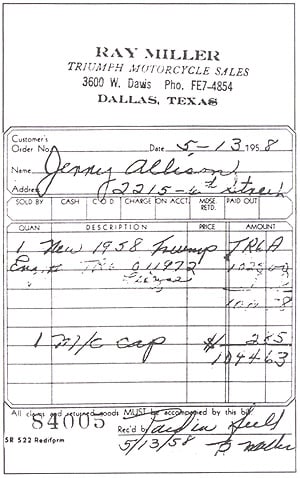 RAY MILLER
TRIUMPH MOTORCYCLE SALES
3600 W. Davis Pho. FE7-4854
DALLAS, TEXAS
Customer's
Order No. Date 5-13 1958
Name Jenny Allison
Address 2215-
SOLD BY CASH C O D CHARGE ON ACCT. MDSE. RETD. PAID OUT
QUAN DESCRIPTION PRICE AMOUNT
1 New 1958 Triump TR6A
Eng # 011972
1 M/c cap $1 2.85
104463
All claims and returned goods MUST be accompanied by this bill
84005 Rec'd by Paid in Full
SR 522 Rediform 5/13/58 Miller